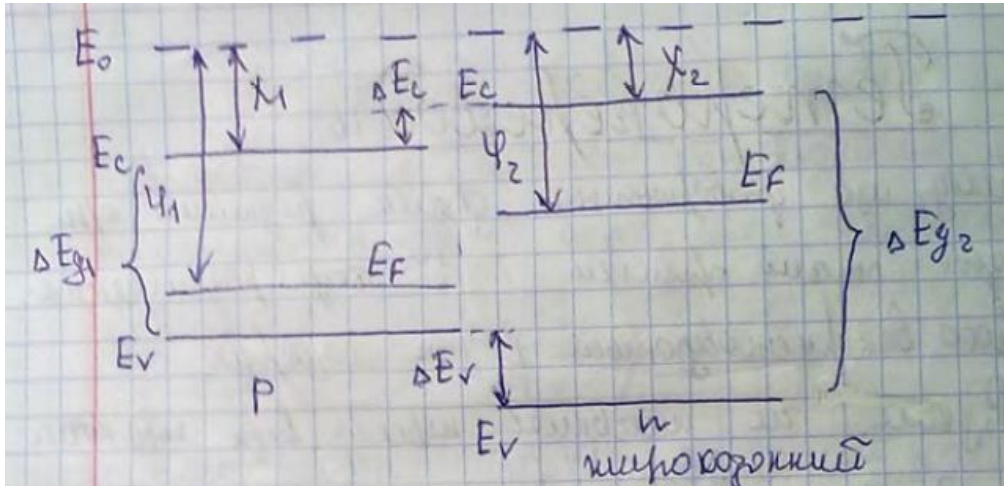 E₀
χ₁
ΔEc
Ec
χ₂
Ec
φ₁
φ₂
EF
ΔEg₁
EF
ΔEg₂
Ev
ΔEv
p
Ev
n
широкозонний